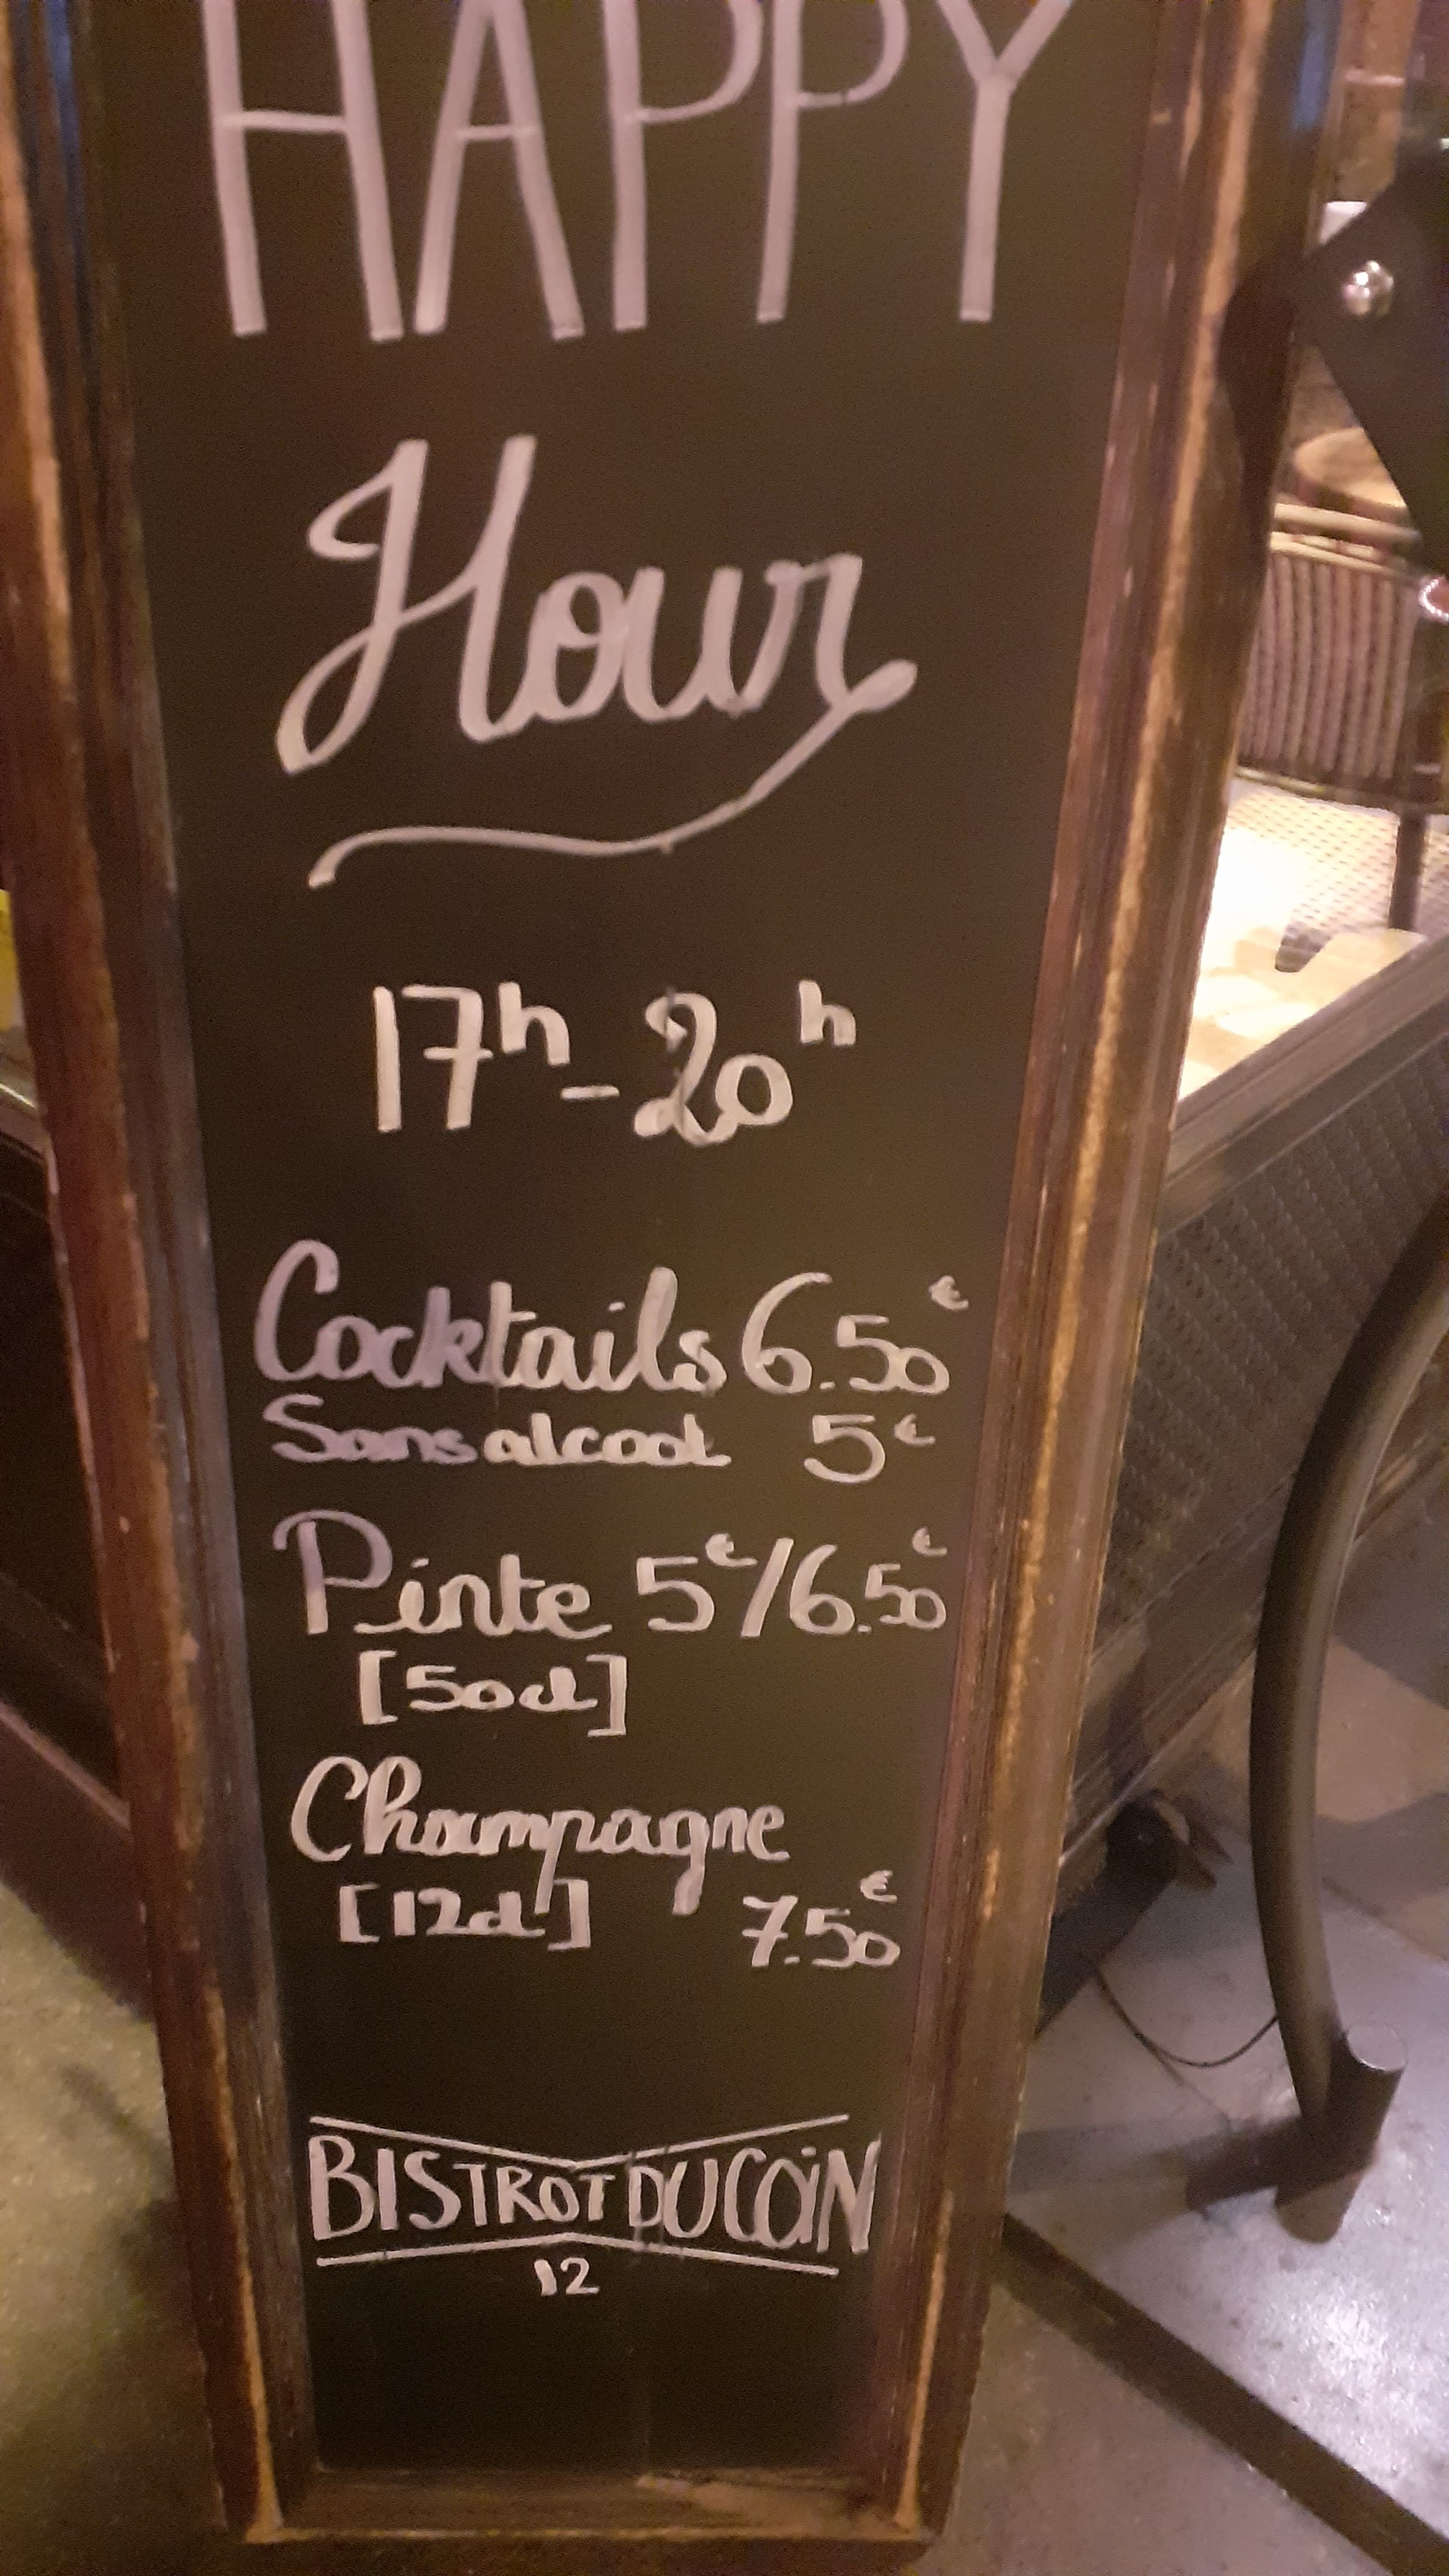 HAPPY
Hour
17h - 20h
Cocktails 6.50€
Sans alcool 5€
Pinte 5€/6.50€
[50cl]
Champagne
[12cl] 7.50€
BISTROT DU COiN
12